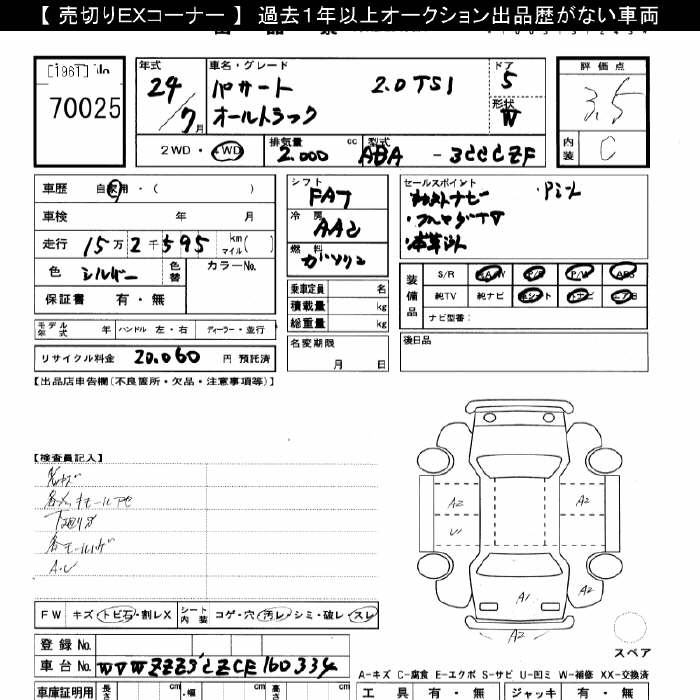 【 売切りEXコーナー 】 過去1年以上オークション出品歴がない車両
70025
年式 車名・グレード ドア 評価点
24/7月 パサート 2.0TSI 5 3.5
オールトラック 形状 W
2WD・4WD 排気量 2.000 cc 型式 ABA - 3CCCZF 内装 C
車歴 自家用・( )
車検 年 月
走行 15万2千595 km マイル ( )
色 シルバー 色替 カラーNo.
保証書 有・無
モデル年式 年 ハンドル 左・右 ディーラー・並行
リサイクル料金 20.060 円 預託済
シフト FA7
冷房 AAC
燃料 ガソリン
乗車定員 名
積載量 kg
総重量 kg
名変期限 月 日
セールスポイント
・本革シート
装備品 S/R A/W P/S P/W ABS
純TV 純ナビ 革シート Tナビ エアB
ナビ型番:
後日品
【出品店車告欄(不良箇所・欠品・注意事項等)】
【検査員記入】
A・U
FW キズ・トビ石・割レX シート内装 コゲ・穴・汚レ・シミ・破レ・スレ
登録No.
車台No. WVWZZZ3CZCE160334
車庫証明用 長さ cm ・幅 cm 高さ cm
A2 A2
U1
A1 A2
A2
スペア
A-キズ C-腐食 E-エクボ S-サビ U-凹ミ W-補修 XX-交換済
工具 有・無 ジャッキ 有・無